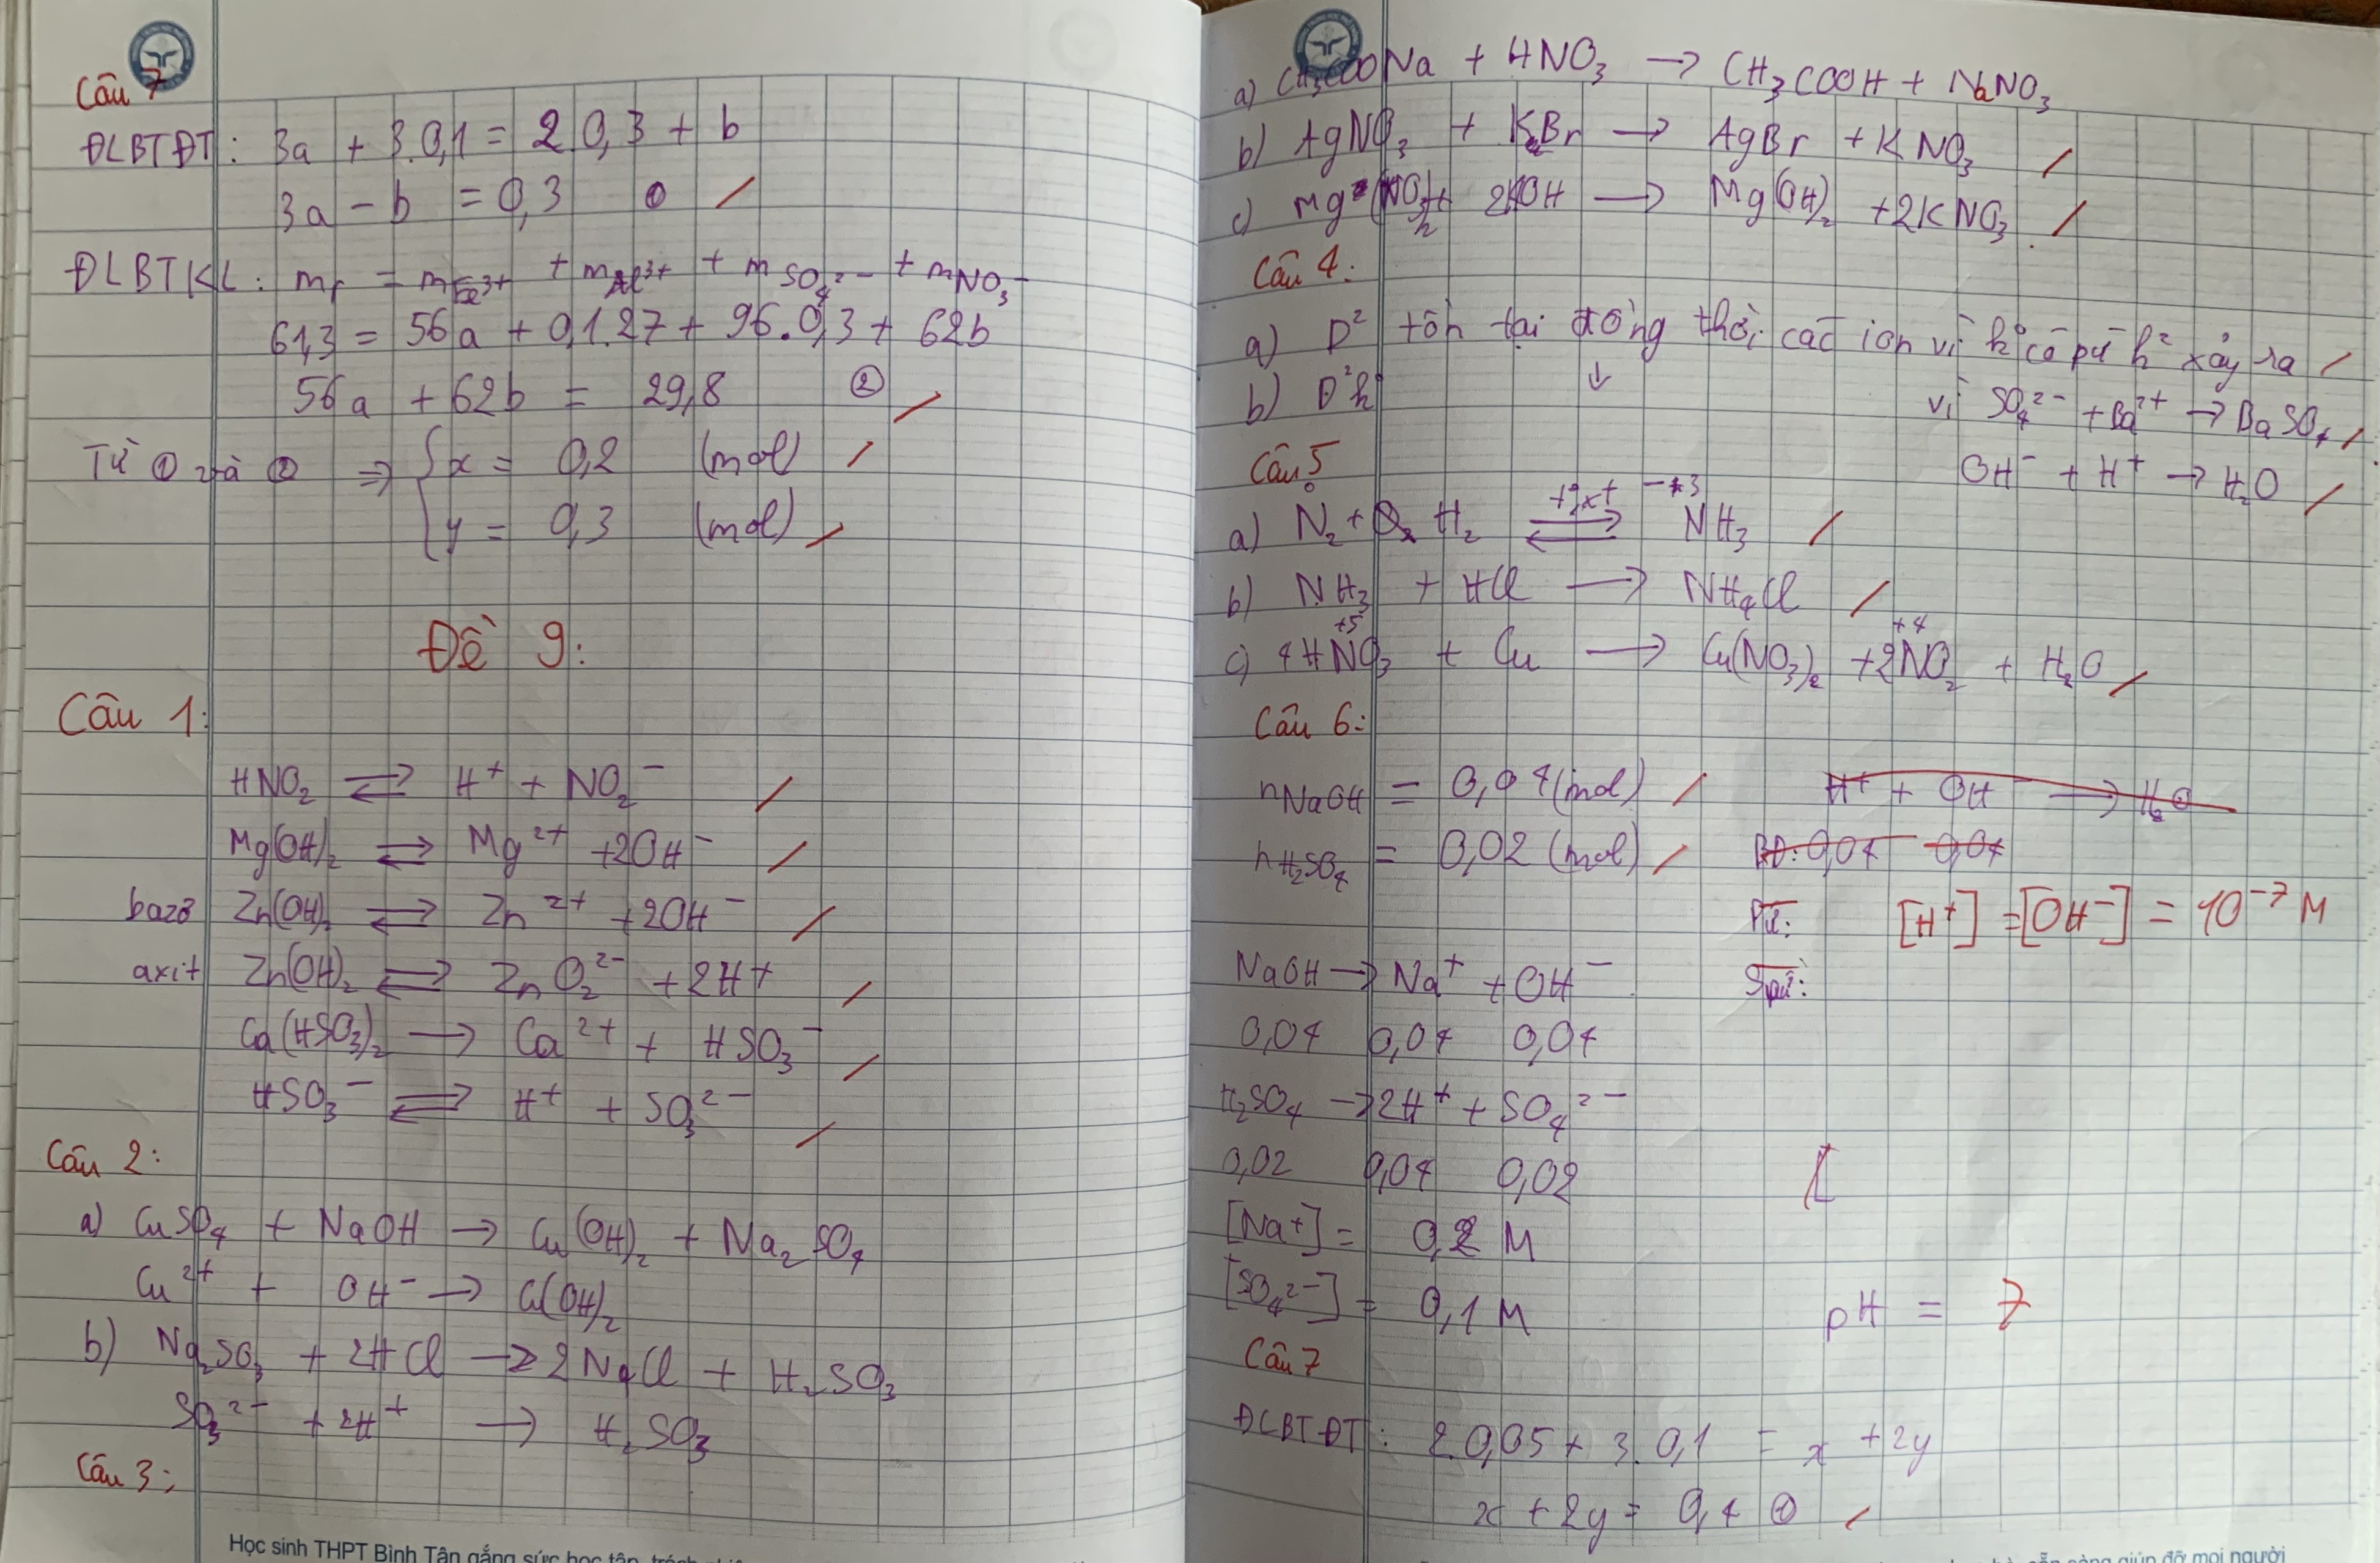 Câu 7
ĐLBTĐT: 3a + 3.0,1 = 2.0,3 + b
3a - b = 0,3 ①
ĐLBTKL: mr = mFe³⁺ + mAl³⁺ + mSO₄²⁻ + mNO₃⁻
61,3 = 56a + 0,1.27 + 96.0,3 + 62b
56a + 62b = 29,8 ②
Từ ① và ② ⇒ { x = 0,2 (mol)
y = 0,3 (mol)
Đề 9:
Câu 1:
HNO₂ ⇌ H⁺ + NO₂⁻
Mg(OH)₂ ⇌ Mg²⁺ + 2OH⁻
bazơ Zn(OH)₂ ⇌ Zn²⁺ + 2OH⁻
axit Zn(OH)₂ ⇌ ZnO₂²⁻ + 2H⁺
Ca(HSO₃)₂ → Ca²⁺ + HSO₃⁻
HSO₃⁻ ⇌ H⁺ + SO₃²⁻
Câu 2:
a) CuSO₄ + NaOH → Cu(OH)₂ + Na₂SO₄
Cu²⁺ + OH⁻ → Cu(OH)₂
b) Na₂SO₃ + 2HCl → 2NaCl + H₂SO₃
SO₃²⁻ + 2H⁺ → H₂SO₃
Câu 3:
Học sinh THPT Bình Tân gắng sức học tập,
a) CH₃COONa + HNO₃ → CH₃COOH + NaNO₃
b) AgNO₃ + KBr → AgBr + KNO₃
c) Mg(NO₃)₂ + 2KOH → Mg(OH)₂ + 2KNO₃
Câu 4:
a) D² tồn tại đồng thời các ion vì k° có pư h² xảy ra
↓
b) D²k° vì SO₄²⁻ + Ba²⁺ → BaSO₄
OH⁻ + H⁺ → H₂O
Câu 5
a) N₂ + H₂ ⇌ NH₃
b) NH₃ + HCl → NH₄Cl
+5 +4
c) 4HNO₃ + Cu → Cu(NO₃)₂ + 2NO₂ + H₂O
Câu 6:
nNaOH = 0,04 (mol) H⁺ + OH⁻ → H₂O
nH₂SO₄ = 0,02 (mol) BĐ: 0,04 0,04
Pư: [H⁺] = [OH⁻] = 10⁻⁷ M
NaOH → Na⁺ + OH⁻ Spư:
0,04 0,04 0,04
H₂SO₄ → 2H⁺ + SO₄²⁻
0,02 0,04 0,02
[Na⁺] = 0,2 M
[SO₄²⁻] = 0,1 M pH = 7
Câu 7
ĐLBTĐT: 2.0,05 + 3.0,1 = x + 2y
x + 2y = 0,4 ①
giúp đỡ mọi người